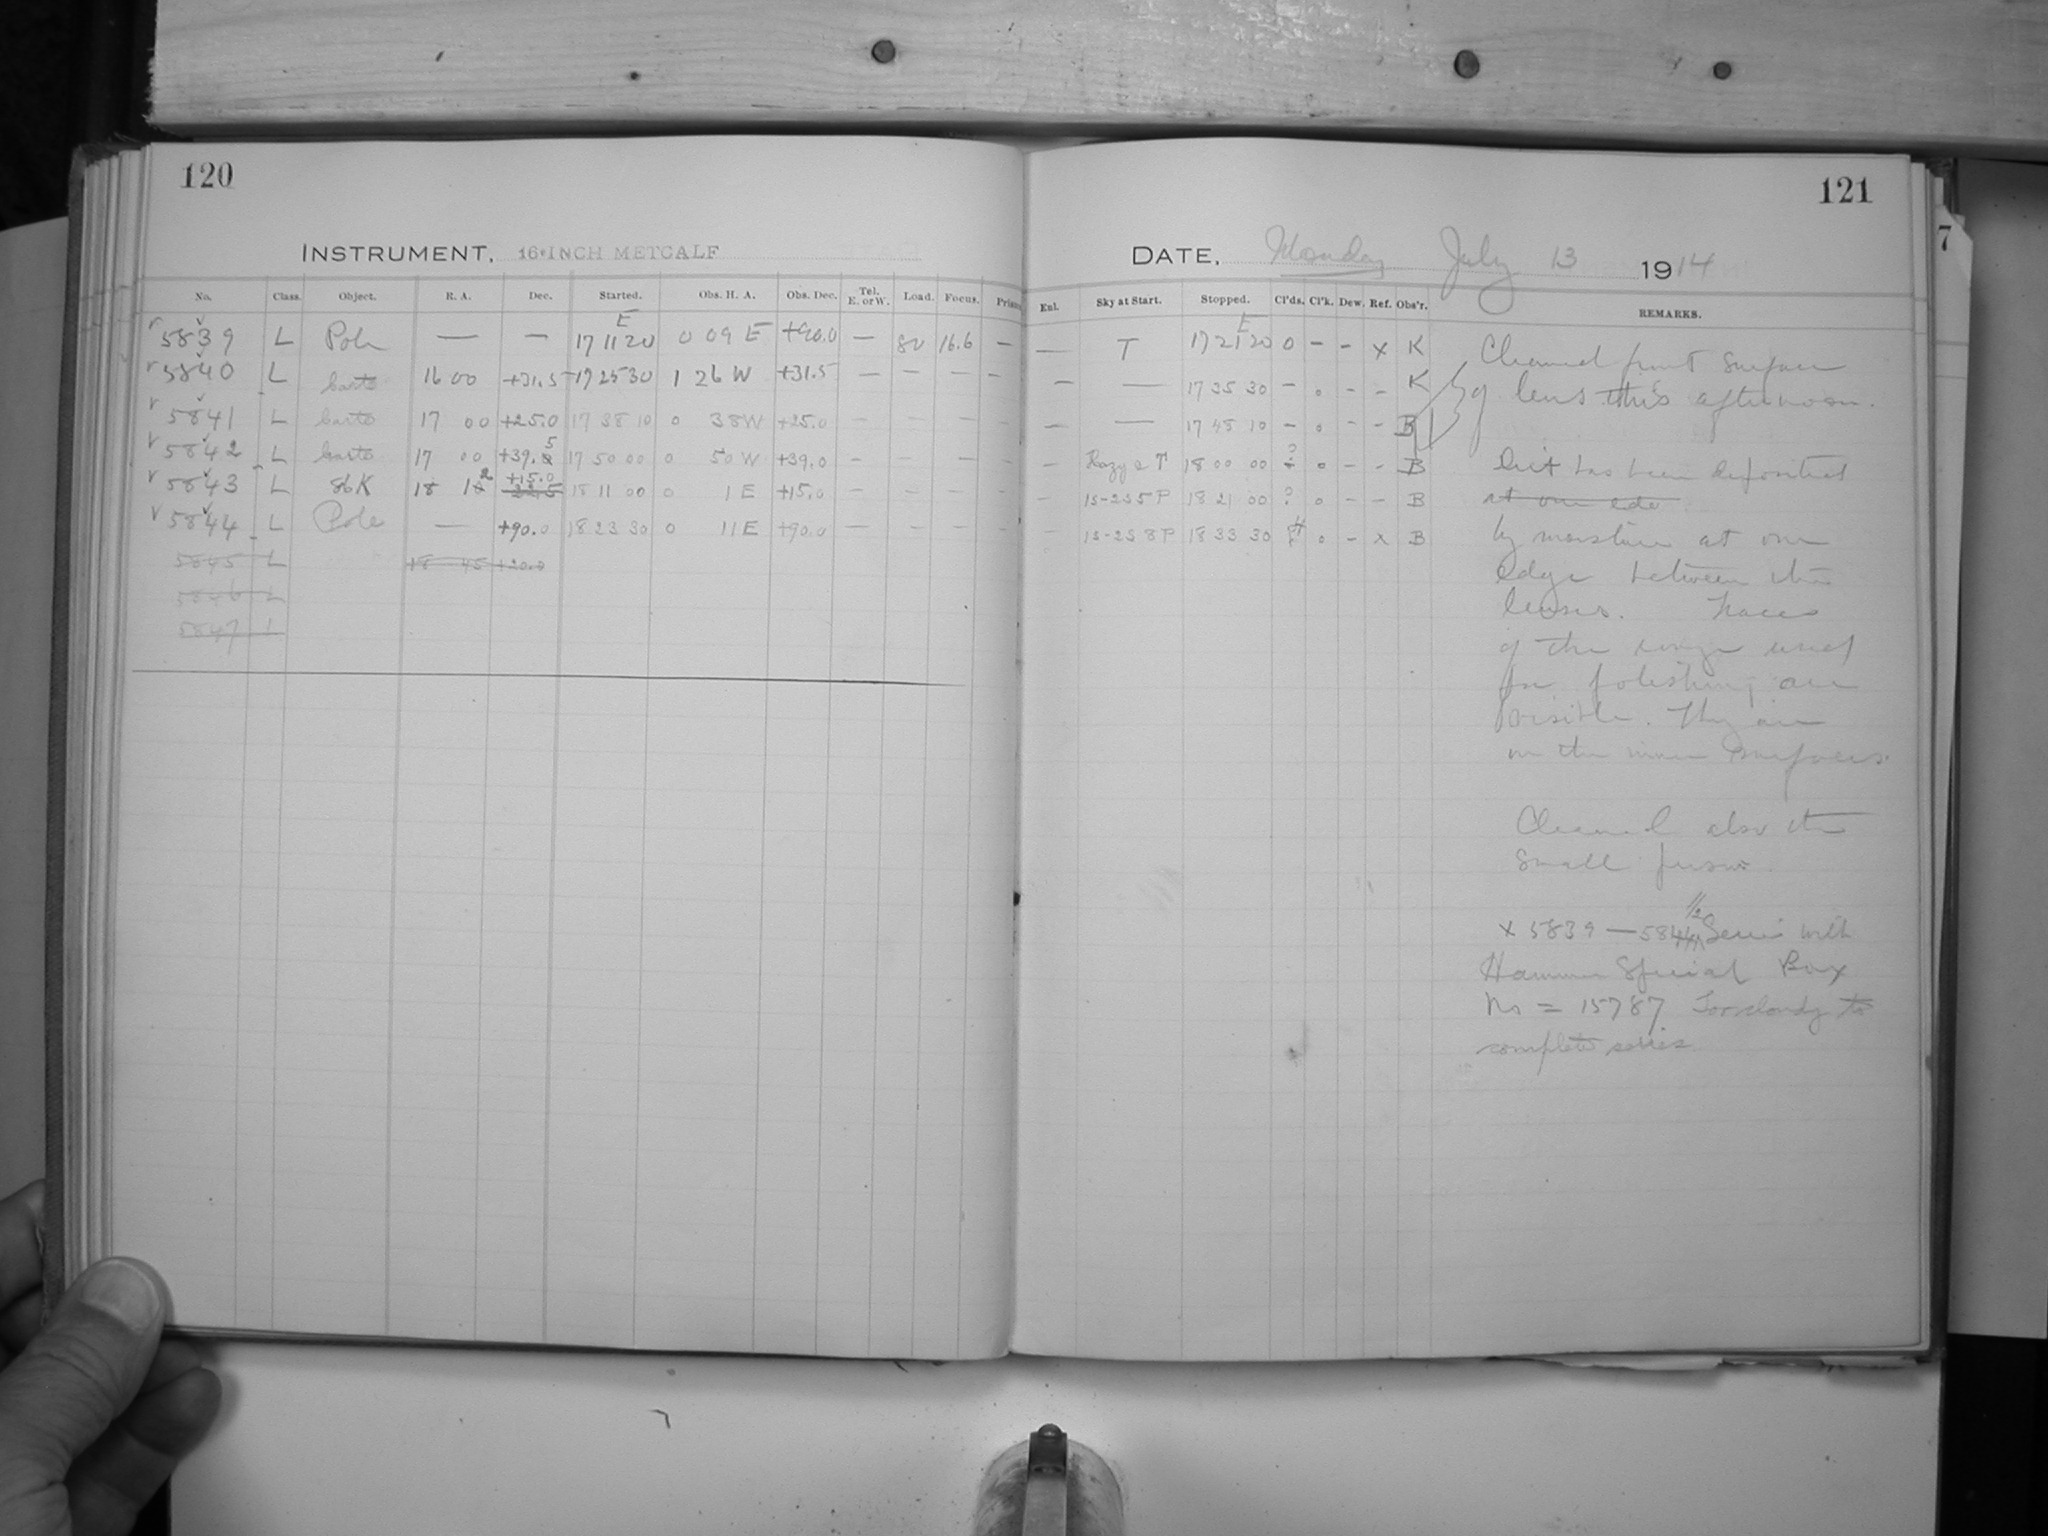 120
INSTRUMENT, 16-INCH METCALF
No. Class. Object. R. A. Dec. Started. Obs. H. A. Obs. Dec. Tel. E. or W. Load. Focus. Prism
5839 L Pole — — E 17 11 20 0 09 E +90.0 — 80 16.6 —
5840 L 16 00 +31.5 17 25 30 1 26 W +31.5 — — — —
5841 L 17 00 +25.0 17 38 10 0 38 W +25.0 — — — —
5842 L 17 00 +39. 5 17 50 00 0 50 W +39.0 — — — —
5843 L 86K 18 12 +15.0 22.5 18 11 00 0 1 E +15.0 — — — —
5844 L Pole — +90.0 18 23 30 0 11 E +90.0 — — — —
5845 L 18 45 +20.0
5846 L
5847 L
121
DATE, Monday July 13 1914
Enl. Sky at Start. Stopped. Cl'ds. Cl'k. Dew. Ref. Obs'r. REMARKS.
— T E 17 21 20 0 - - x K
— — 17 35 30 - 0 - - K
— — 17 48 10 - 0 - - B
— Hazy & T 18 00 00 ? 0 - - B
— 15-25 5P 18 21 00 ? 0 - - B
— 15-25 8P 18 33 30 0 - x B
Cleaned front surface
of lens this afternoon.
Dirt has been deposited
at one edge
by moisture at one
edge between the
lenses. Traces
of the rouge used
for polishing are
visible. They are
on the inner surfaces.
Cleaned also the
small prism.
x 5839 — 5844 1/2 Series with
Hammer Special Box
No = 15787 Too cloudy to
complete series
7